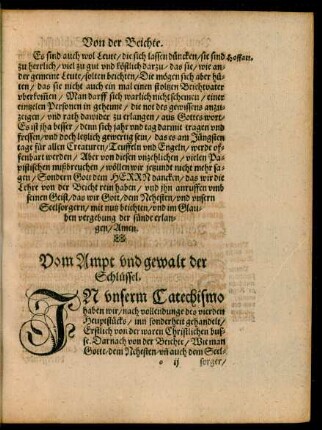 Von der Beichte.
Es sind auch wol Leute/ die sich lassen düncken/ sie sind
Hoffart.
zu herrlich/ viel zu gut vnd köstlich darzu/ das sie/ wie an-
der gemeine Leute/ solten beichten/ Die mögen sich aber hü-
ten/ das sie nicht auch ein mal einen stoltzen Beichtvater
vberkom̃en/ Man darff sich warlich nicht schemen/ einer
eintzelen Personen in geheime/ die not des gewissens anzu-
zeigen/ vnd rath dawider zu erlangen/ aus Gottes wort/
Es ist jha besser/ denn sich jahr vnd tag darmit tragen vnd
fressen/ vnd doch letzlich gewertig sein/ das es am Jüngsten
tage für allen Creaturen/ Teuffeln vnd Engeln/ werde of-
fenbart werden/ Aber von diesen vnzehlichen/ vielen Pa-
pistischen mißbreuchen/ wöllen wir jetzundt nicht mehr sa-
gen/ Sondern Gott dem HERRN dancken/ das wir die
Lehre von der Beicht rein haben/ vnd jhn anruffen vmb
seinen Geist/ das wir Gott/ dem Nehesten/ vnd vnsern
Seelsorgern/ mit nutz beichten/ vnd im Glau-
ben vergebung der sünde erlan-
gen/ Amen.
Vom Ampt vnd gewalt der
Schlüssel.
IN vnserm Catechismo
haben wir/ nach vollendunge des vierden
Heuptstücks/ inn sonderheit gehandelt/
Erstlich von der waren Christlichen bus-
se. Darnach von der Beichte/ Wie man
Gott/ dem Nehesten/ vn̄ auch dem Seel-
ij
sorger/